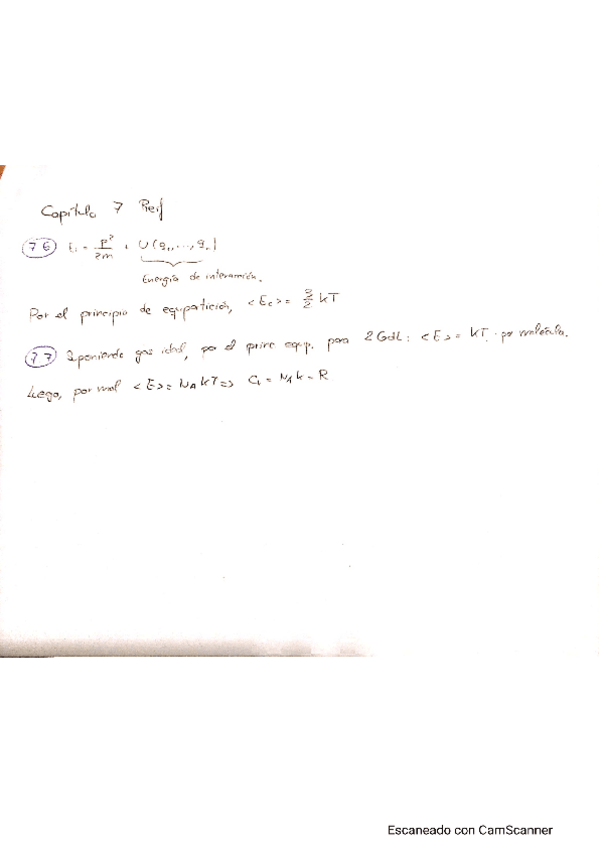 Capítulo 7 Reif
7.6 E₁ = p²/2m + U(q₁, ..., qₙ)
Energía de interacción.
Por el principio de equipartición, <Ec> = 3/2 kT
7.7 Suponiendo gas ideal, por el princ equip. para 2 Gdl: <E> = kT. por molécula.
Luego, por mol <E> = NA kT => CL = NA k = R
Escaneado con CamScanner